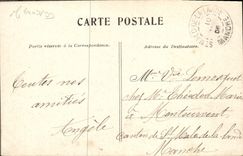 CARTE POSTALE
Partie réservée à la Correspondance.
Adresse du Destinataire.
Toutes nos
amitiés
Angèle
Mme Vve Lemesnet
chez Mr Théodore Marie
à Montsurvent
Canton de St Malo de la Lande
Manche
MANCHE